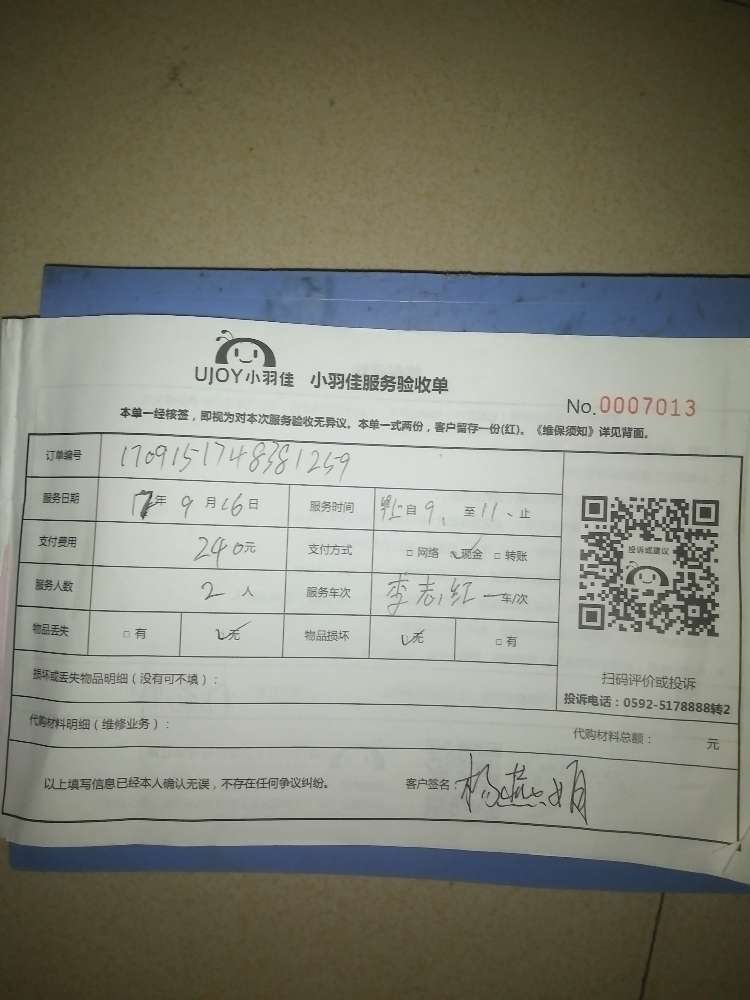 UJOY小羽佳 小羽佳服务验收单
No.0007013
本单一经核签，即视为对本次服务验收无异议。本单一式两份，客户留存一份(红)。《维保须知》详见背面。
订单编号 1709151748381259
服务日期 17年9月16日 服务时间 自9 至11 止
支付费用 240元 支付方式 □ 网络 ☑ 现金 □ 转账
服务人数 2人 服务车次 李志红一车/次
物品丢失 □ 有 ☑ 无 物品损坏 ☑ 无 □ 有
投诉或建议
扫码评价或投诉
投诉电话：0592-5178888转2
损坏或丢失物品明细（没有可不填）：
代购材料明细（维修业务）： 代购材料总额： 元
以上填写信息已经本人确认无误，不存在任何争议纠纷。 客户签名：杨燕娟